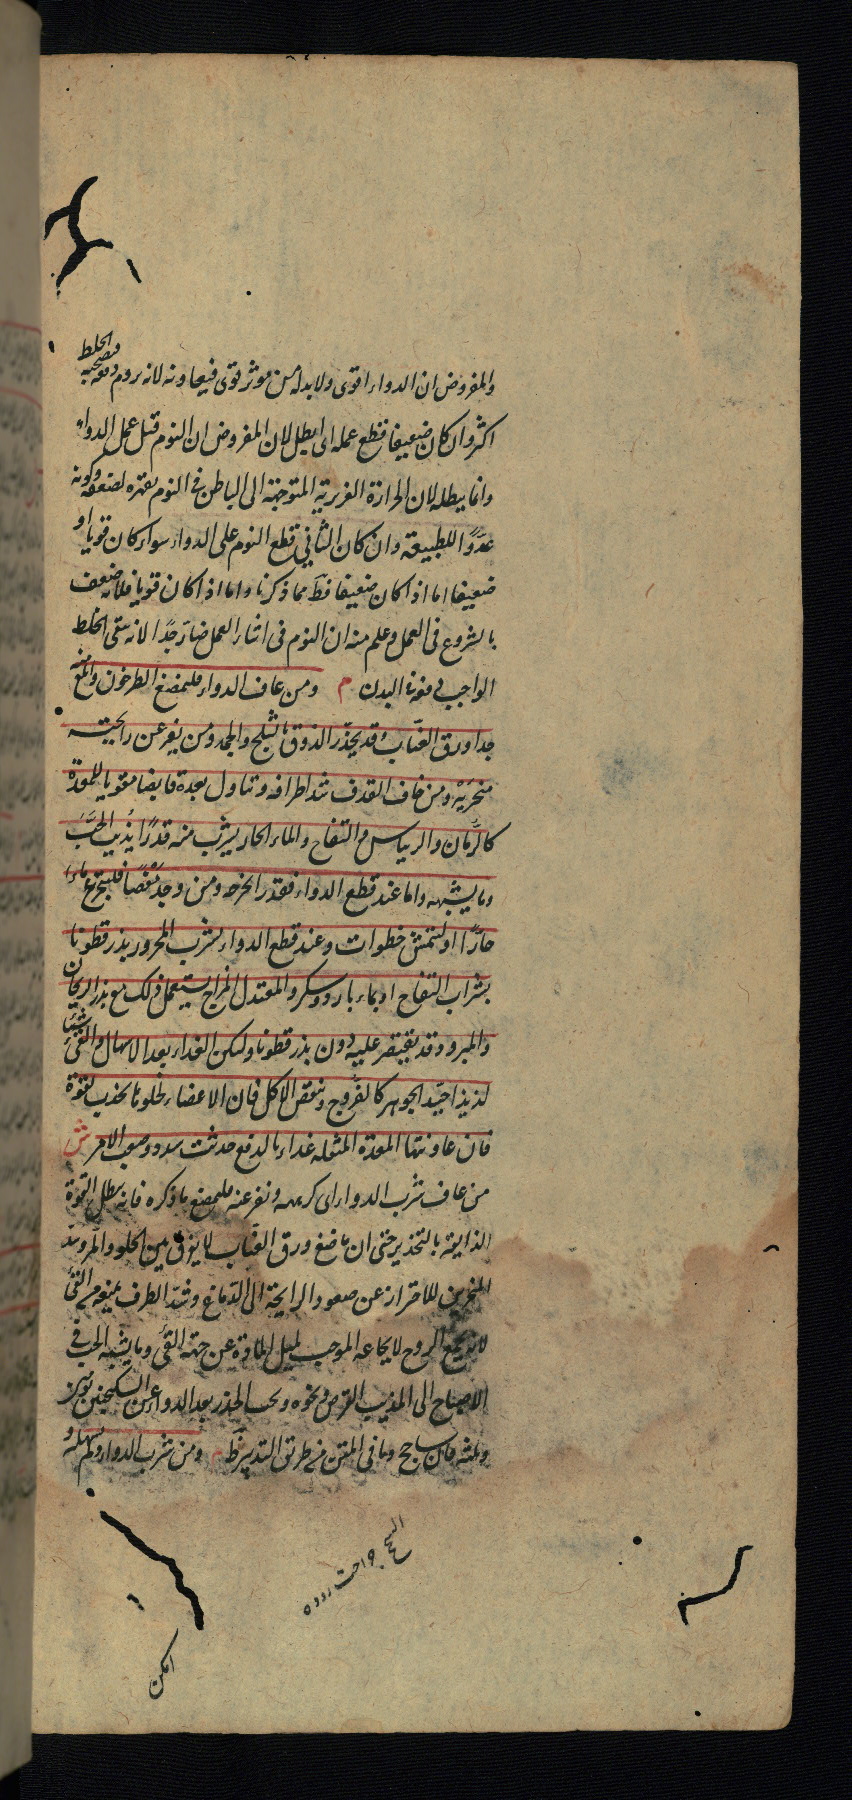 والمفروض ان الدواء اقوى ولا بد له من موثر قوى فيعاونه لانه يروم دفعه فيصحبه الخلط
اكثر وان كان ضعيفا قطع عمله اى ابطل لان المفروض ان النوم قبل عمل الدواء
وانما يبطله لان الحرارة الغريزية المتوجهة الى الباطن فى النوم تقهره لضعفه وكونه
عدوًّا للطبيعة وان كان الثانى قطع النوم على الدواء سواء كان قويا او
ضعيفا اما اذا كان ضعيفا فظَ مما ذكرنا واما اذا كان قويا فلانه ضعف
بالشروع فى العمل وعلم منه ان النوم فى اثناء العمل ضارّ جدًا لانه يبقى الخلط
الواجب دفعه فى البدن م ومن عاف الدواء فليمضغ الطرخون وامنع منه
جدا ورق العنّاب وقد يخدّر الذوق بالثلج والجمد ومن ينفر عن رايحته
منخريه ومن خاف القذف شد اطرافه وتناول بعده قابضا مقويا للمعدة
كالرمّان والريباس والتفاح والماء الحار يشرب منه قدرًا يذيب الحبّ
وما يشبهه واما عند قطع الدواء فقدر ما يخرجه ومن وجد مغصًا فليتجرع ماءا
حارّا او ليتمش خطوات وعند قطع الدواء يشرب المحرور بزرقطونا
بشراب التفاح او بماء بارد وسكر والمعتدل المزاج يستعمل ذلك مع بزر الريحان
والمبرود قد يقتصر عليه دون بزرقطونا وليكن الغداء بعد الاسهال والقئ شيئا
لذيذا جيّد الجوهر كالفرّوج وينقص الاكل فان الاعضاء لخلوها تجذب بقوة
فان عاونتها المعدة المثقله غداءا بالدفع حدثت سدد وصعب الامر ش
من عاف شرب الدواء اى كرهه ونفر عنه فليمضغ ما ذكره فانه يبطل القوة
الذايقة بالتخدير حتى ان ماضغ ورق العنّاب لا يفرق بين الحلو والمر وسدّ
المنخرين للاحتراز عن صعود الرايحة الى الدّماغ وشدّ الطرف يمنع من القئ
لانه يجمع الروح لايجاعه الموجب لميل المادة عن جهة القئ وما يشبه الحب فى
الاحتياج الى المذيب القرص ونحوه ويجب الحذر بعد الدواء عن السكنجبين
ومن شرب الدواء ولم يسهله و